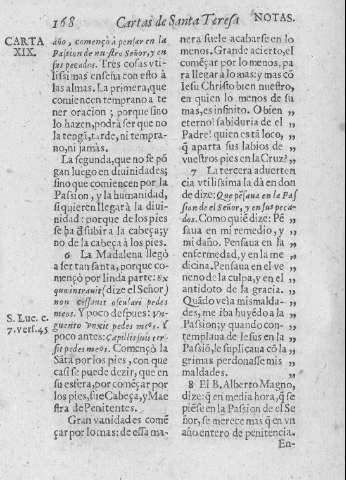 168 Cartas de Santa Teresa NOTAS.
CARTA
XIX.
año, començò à pensar en la
Passion de nuestro Señor, y en
sus pecados. Tres cosas vti-
lissimas enseña con esto à
las almas. La primera, que
comiencen temprano a te-
ner oracion; porque sino
lo hazen, podrà ser que no
la tengã, tarde, ni tempra-
no, ni jamàs.
La segunda, que no se põ-
gan luego en diuinidades;
sino que comiencen por la
Passion, y la humanidad,
si quierẽ llegar à la diui-
nidad: porque de los pies
se ha d̃ subir a la cabeça; y
no de la cabeça à los pies.
6 La Madalena llegò
à ser tan santa, porque co-
mençò por linda parte: Ex
quo intrauit (dize el Señor)
non cessauit osculari pedes
meos. Y poco despues: Vn-
guento vnxit pedes meos. Y
poco antes: Capillis suis ter-
sit pedes meos. Començò la
Sãta por los pies, con que
casi se puede dezir, que en
su esfera, por començar por
los pies, fue Cabeça, y Mae
stra de Penitentes.
Gran vanidad es comẽ
çar por lo mas: de essa ma-
S. Luc. c.
7. vers. 45
nera suele acabarse en lo
menos. Grande acierto, el
comẽçar por lo menos, pa
ra llegar à lo mas: y mas cõ
Iesu Christo bien nuestro,
en quien lo menos de su
mas, es infinito. O bien „
eterno! sabiduria del „
Padre! quien està loco, „
q̃ aparta sus labios de „
vuestros pies en la Cruz? „
7 La tercera aduerten
cia vtilissima la dà en don
de dize: Que pẽsaua en la Pas
sion de el Señor, y en sus peca-
dos. Como quiẽ dize: Pẽ
saua en mi remedio, y
mi daño. Pensaua en la
enfermedad, y en la me
dicina. Pensaua en el ve
neno: de la culpa, y en el
antidoto de la gracia. „
Quãdo veìa mis malda- „
des, me iba huyẽdo à la „
Passion; y quando con- „
templaua de Iesus en la „
Passiõ, le suplicaua cõ la „
grimas perdonasse mis „
maldades. „
8 El B. Alberto Magno,
dize: q̃ en media hora, q̃ se
piẽse en la Passion de el Se
ñor, se merece mas q̃ en vn
año entero de penitencia.
En-